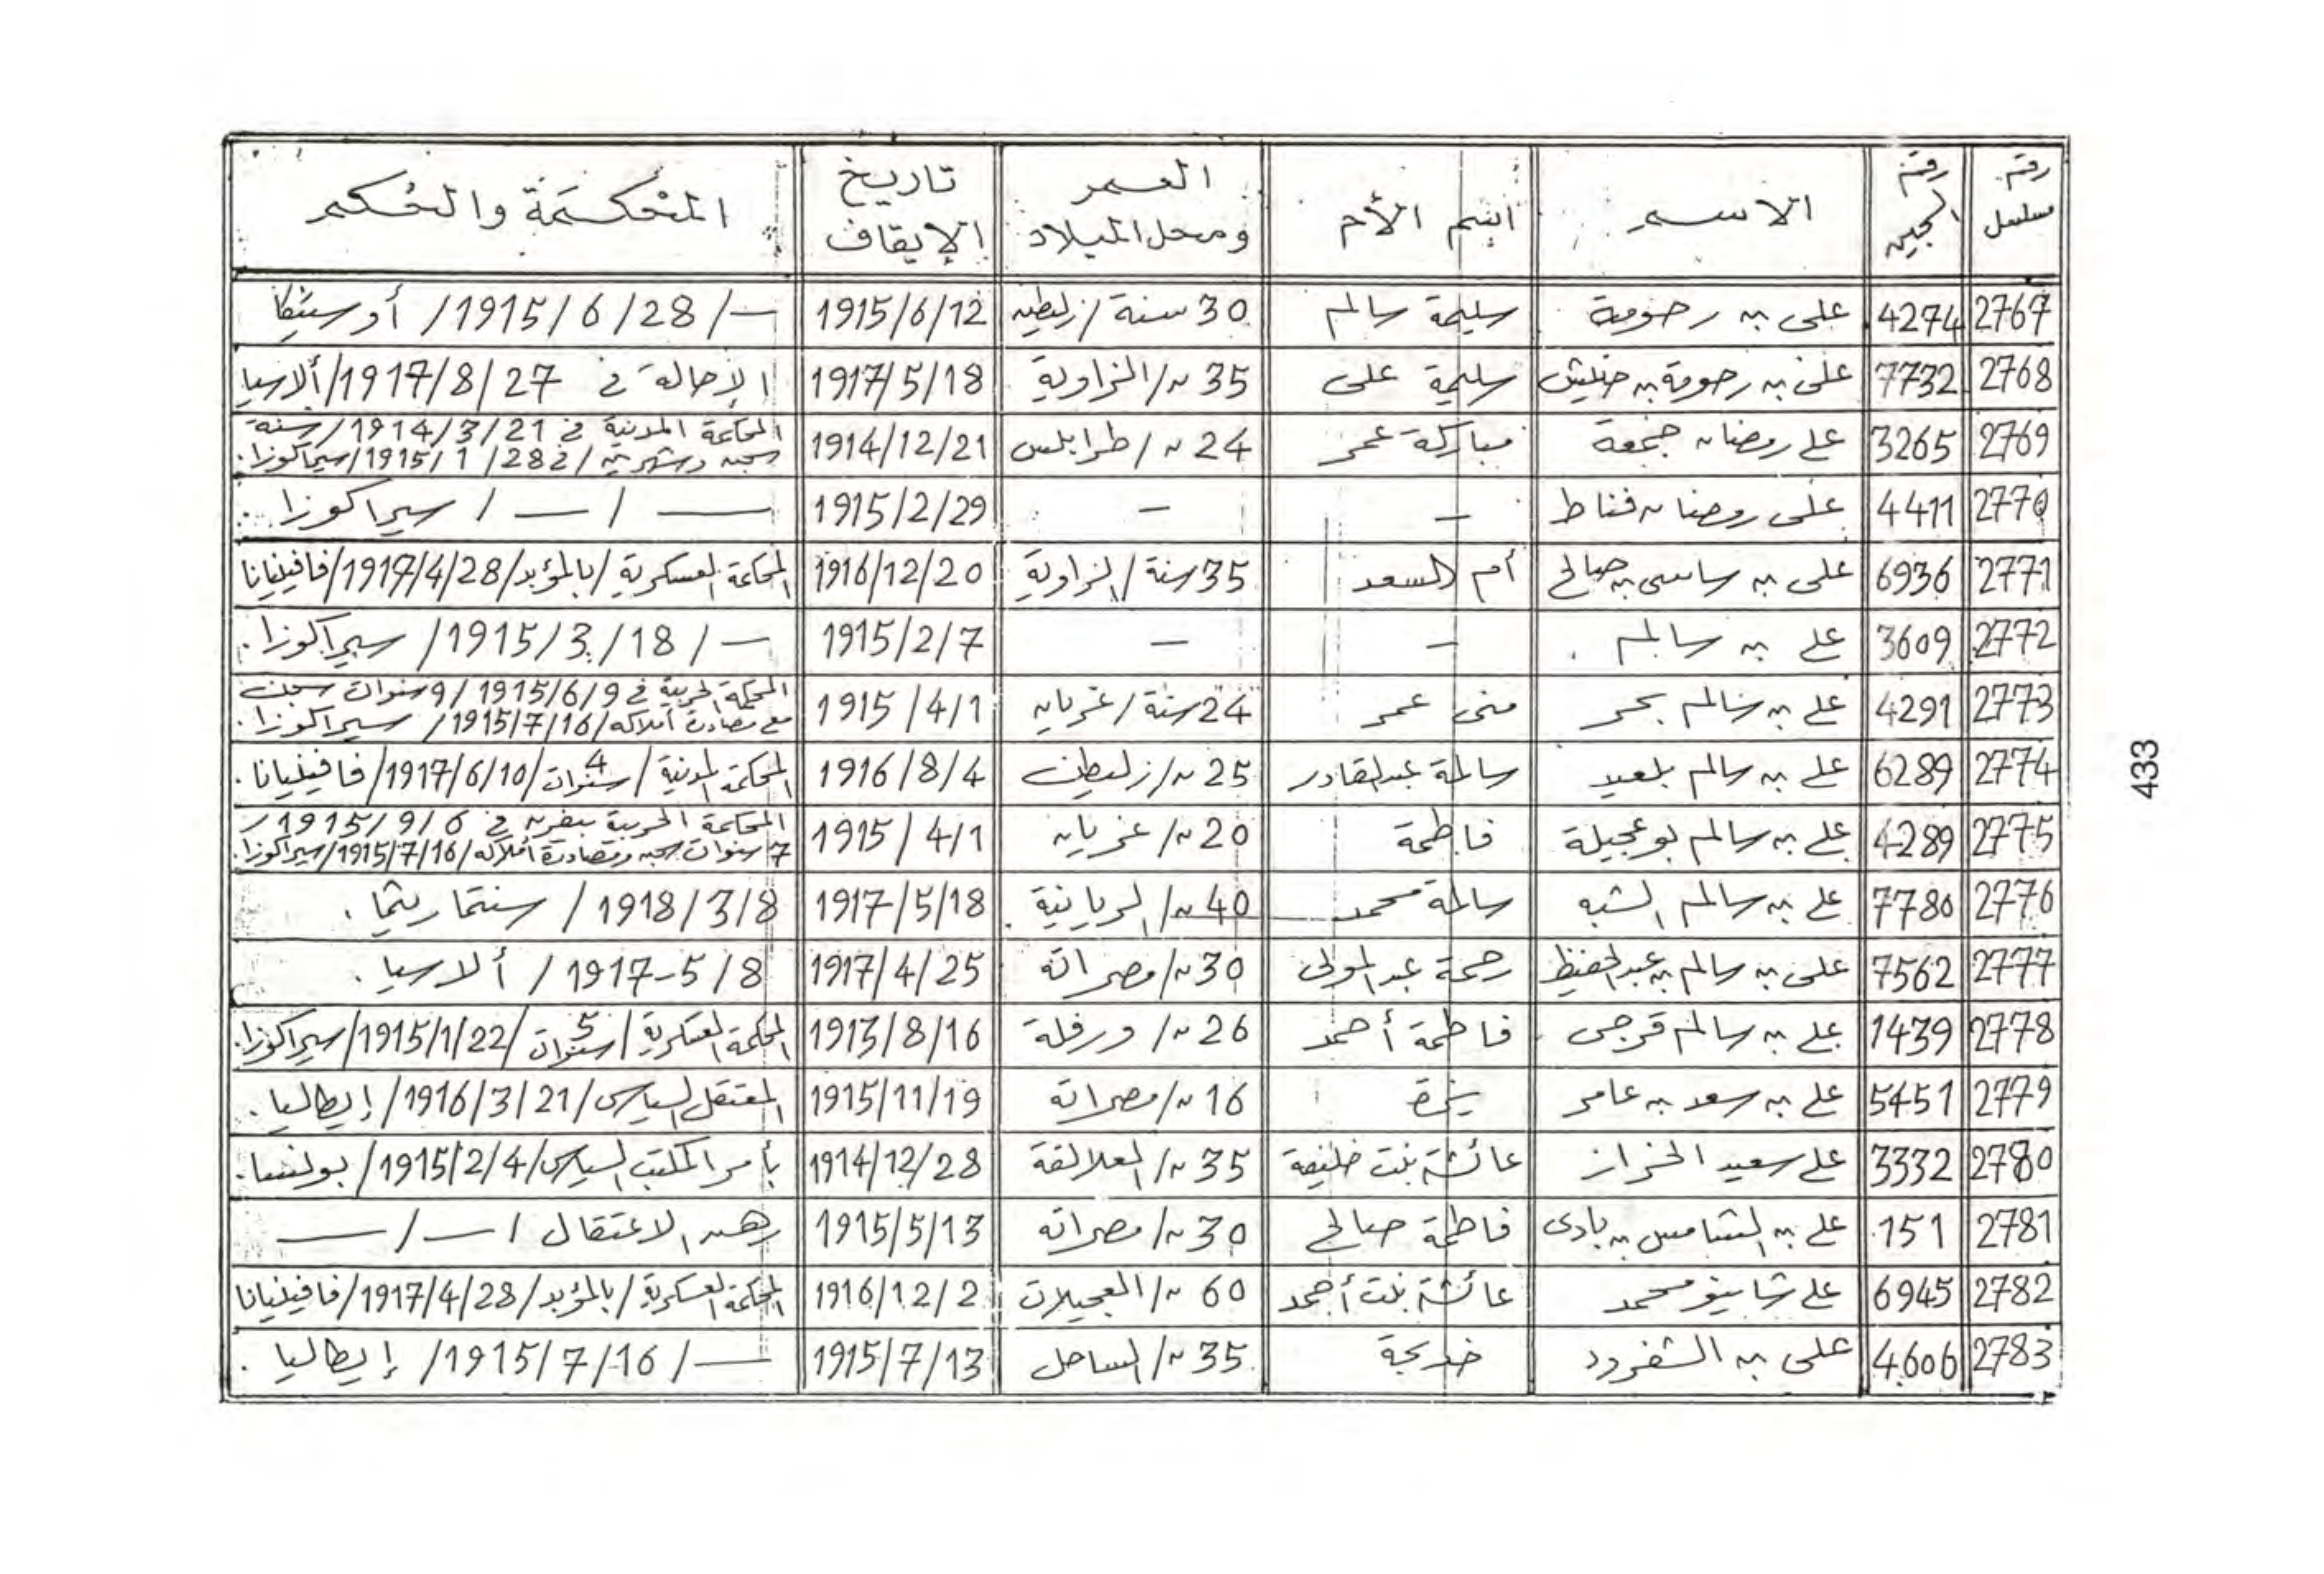 رقم مسلسل | رقم السجين | الاسم | اسم الأم | العمر ومحل الميلاد | تاريخ الإيقاف | المحكمة والحكم
2767 | 4274 | على بن رحومة | سليمة سالم | 30 سنة / زليطن | 1915/6/12 | — / 1915/6/28 / أوستيكا
2768 | 7732 | على بن رحومة بن حنيش | سليمة على | 35 س / الزاوية | 1917/5/18 | الإحالة في 1917/8/27 / ألاسيا
2769 | 3265 | على رمضان جمعة | مباركة عمر | 24 س / طرابلس | 1914/12/21 | المحكمة المدنية في 1914/3/21 / سنة
سجن وشهرين / 1915/1/28 / سيراكوزا.
2770 | 4411 | على رمضان قناط | – | – | 1915/2/29 | — / — / سيراكوزا.
2771 | 6936 | على بن ساسى بن صالح | أم السعد | 35 سنة / الزاوية | 1916/12/20 | المحكمة العسكرية / بالمؤبد / 1917/4/28 / فافينيانا
2772 | 3609 | على بن سالم. | – | – | 1915/2/7 | — / 1915/3/18 / سيراكوزا.
2773 | 4291 | على بن سالم بحر | منى عمر | 24 سنة / غريان | 1915/4/1 | المحكمة الحربية في 1915/6/9 / 9 سنوات سجن
مع مصادرة أملاكه / 1915/7/16 / سيراكوزا.
2774 | 6289 | على بن سالم بلعيد | سالمة عبدالقادر | 25 س / زليطن | 1916/8/4 | المحكمة المدنية / 4 سنوات / 1917/6/10 / فافينيانا.
2775 | 4289 | على بن سالم بوعجيلة | فاطمة | 20 س / غريان | 1915/4/1 | المحكمة الحربية بيفرن في 1915/9/6 /
7 سنوات سجن ومصادرة أملاكه / 1915/7/16 / سيراكوزا.
2776 | 7780 | على بن سالم الشبه | سالمة محمد | 40 س / الريانية. | 1917/5/18 | 1918/3/8 / سنتماريتما.
2777 | 7562 | على بن سالم بن عبدالحفيظ | رحمة عبدالمولى | 30 س / مصراتة | 1917/4/25 | 1917-5/8 / ألاسيا.
2778 | 1439 | على بن سالم قرجى | فاطمة أحمد | 26 س / ورفلة | 1913/8/16 | المحكمة العسكرية / 5 سنوات / 1915/1/22 / سيراكوزا.
2779 | 5451 | على بن سعد بن عامر | | 16 س / مصراتة | 1915/11/19 | المعتقل السياسى / 1916/3/21 / إيطاليا.
2780 | 3332 | على سعيد الخراز | عائشة بنت خليفة | 35 س / العلالقة | 1914/12/28 | بأمر المكتب السياسى / 1915/2/4 / بولنسا.
2781 | 151 | على بن الشامس بن بادى | فاطمة صالح | 30 س / مصراتة | 1915/5/13 | رهن الاعتقال / — / —
2782 | 6945 | على شاينو محمد | عائشة بنت أحمد | 60 س / العجيلات | 1916/12/2 | المحكمة العسكرية / بالمؤبد / 1917/4/28 / فافينيانا
2783 | 4606 | على بن الشفرود | خديجة | 35 س / الساحل | 1915/7/13 | — / 1915/7/16 / إيطاليا.
433